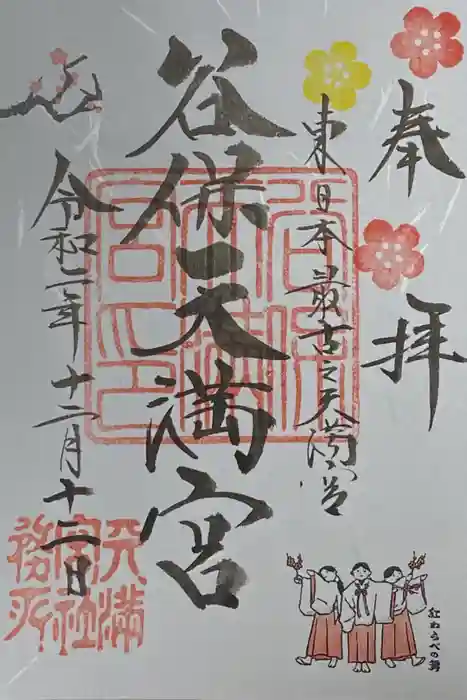 奉拝
東日本最古之天満宮
谷保天満宮
令和二年十二月十二日
天満
宮社
務所
紅わらべの舞